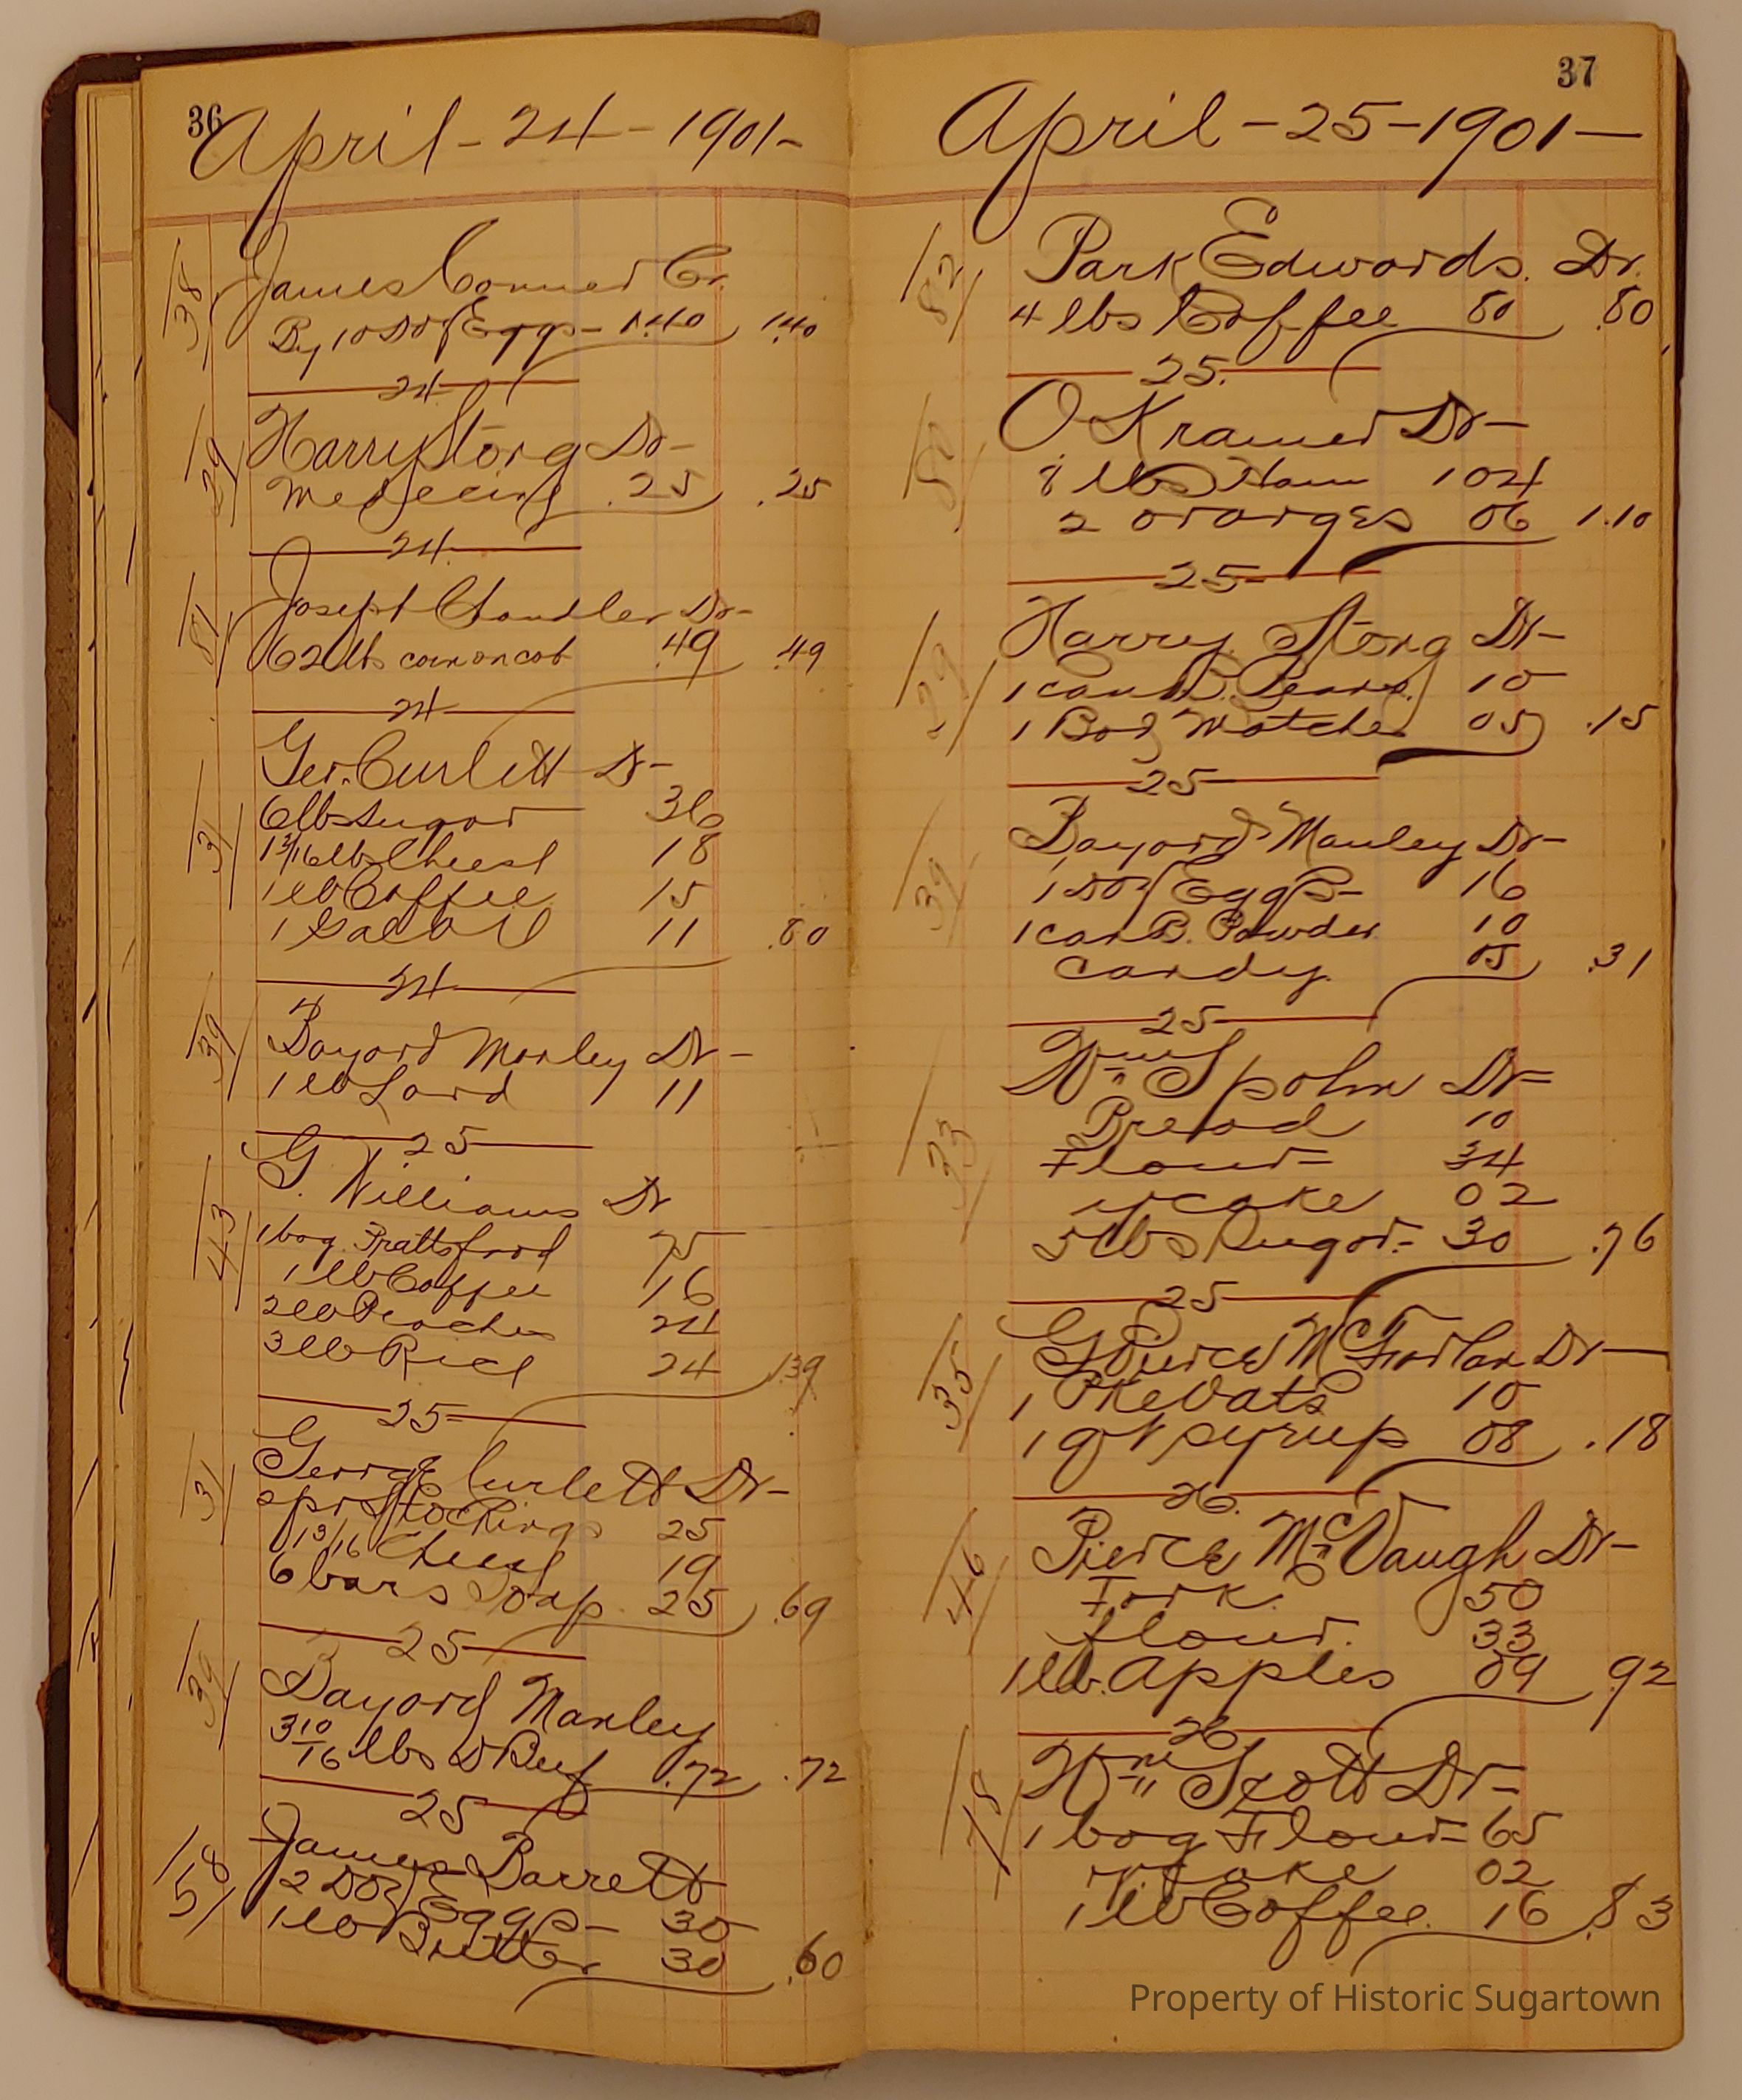 36
April - 24 - 1901 -
38
James Conner Cr.
By 10 Doz Eggs - 1.40 1.40
24
29
Harry Storg Dr -
Medecine .25 .25
24.
81
Joseph Chandler Dr -
62 lbs corn on cob .49 .49
24
31
Geo. Curlett Dr -
6 lbs sugar 36
1 3/16 lbs Cheese 18
1 lb Coffee 15
1 Gal Oil 11 .80
24
39
Bayard Manley Dr -
1 lb Lard 11
25
43
G. Williams Dr
1 bag. Pratts food 75
1 lb Coffee 16
2 lb Peaches 24
3 lb Rice 24 1.39
25
31
George Curlett Dr -
2 pr Stockings 25
1 3/16 Cheese 19
6 bars Soap 25 .69
25
39
Bayard Manley
3 10/16 lbs D Beef .72 .72
25
58
James Barrett
2 Doz Eggs - 30
1 lb Butter 30 .60
37
April - 25 - 1901 -
82
Park Edwards. Dr.
4 lbs Coffee 80 .80
25.
O Kramer Dr -
8 lbs Ham 104
2 oranges 06 1.10
25
29
Harry Storg Dr -
1 can Pears. 10
1 Box Matches 05 .15
25
39
Bayard Manley Dr -
1 Doz Eggs - 16
1 can B. Powder 10
Candy. 05 .31
25
33
Wm Spohn Dr
Bread 10
Flour 34
y cake 02
5 lbs Sugar. 30 .76
25
35
G Pierce McFarlan Dr
1 Pke Oats 10
1 qt Syrup 08 .18
26.
46
Pierce McVaugh Dr -
Fork. 50
flour. 33
1 lb. apples 09 .92
26
78
Wm Scott Dr -
1 bag Flour 65
y. Cake 02
1 lb Coffee. 16 .83
Property of Historic Sugartown